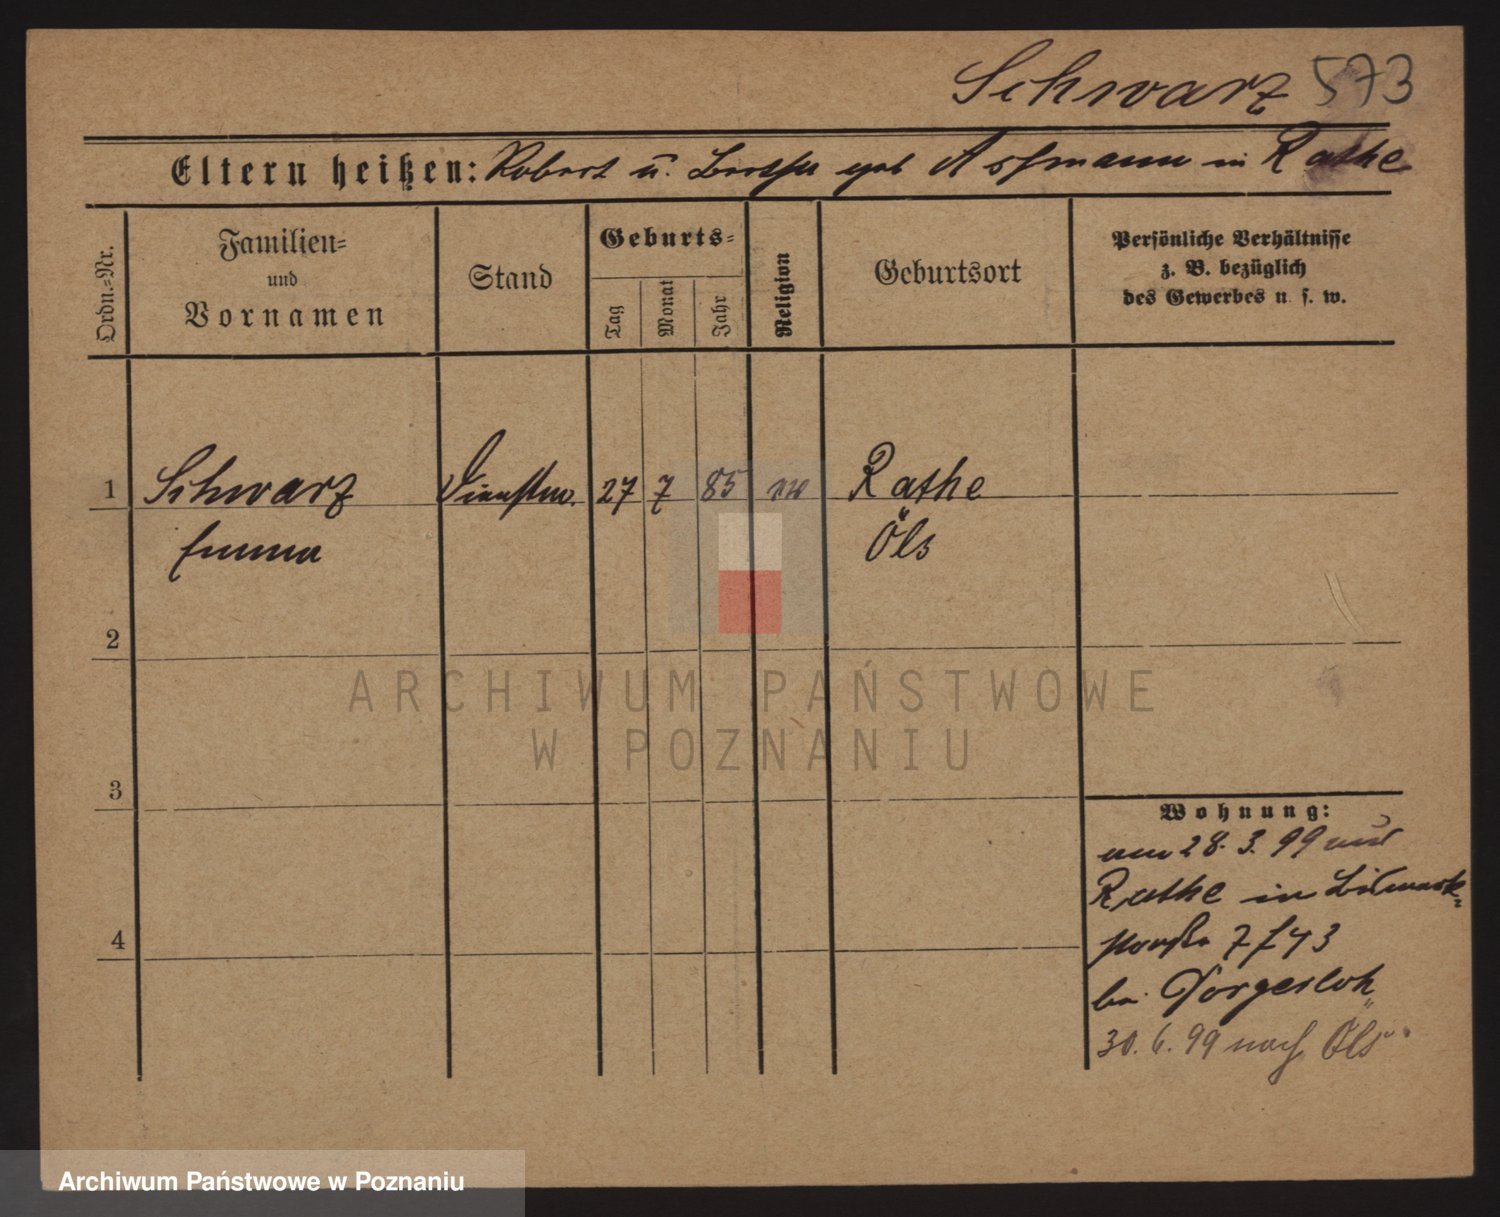 Schwarz 573
Eltern heißen: Robert u. Bertha geb Assmann in Rathe
Ordn.-Nr.
Familien-
und
Vornamen
Stand
Geburts-
Tag
Monat
Jahr
Religion
Geburtsort
Persönliche Verhältnisse
z. B. bezüglich
des Gewerbes u. s. w.
1 Schwarz Dienstm. 27 7 85 Rathe
Emma Öls
2
3
4
Wohnung:
am 28. 3. 99 aus
Rathe in Bismark-
straße 7
bei
30. 6. 99 nach Öls
ARCHIWUM PAŃSTWOWE
W POZNANIU
Archiwum Państwowe w Poznaniu